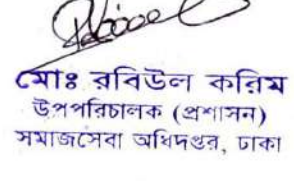 মোঃ রবিউল করিম
উপপরিচালক (প্রশাসন)
সমাজসেবা অধিদপ্তর, ঢাকা